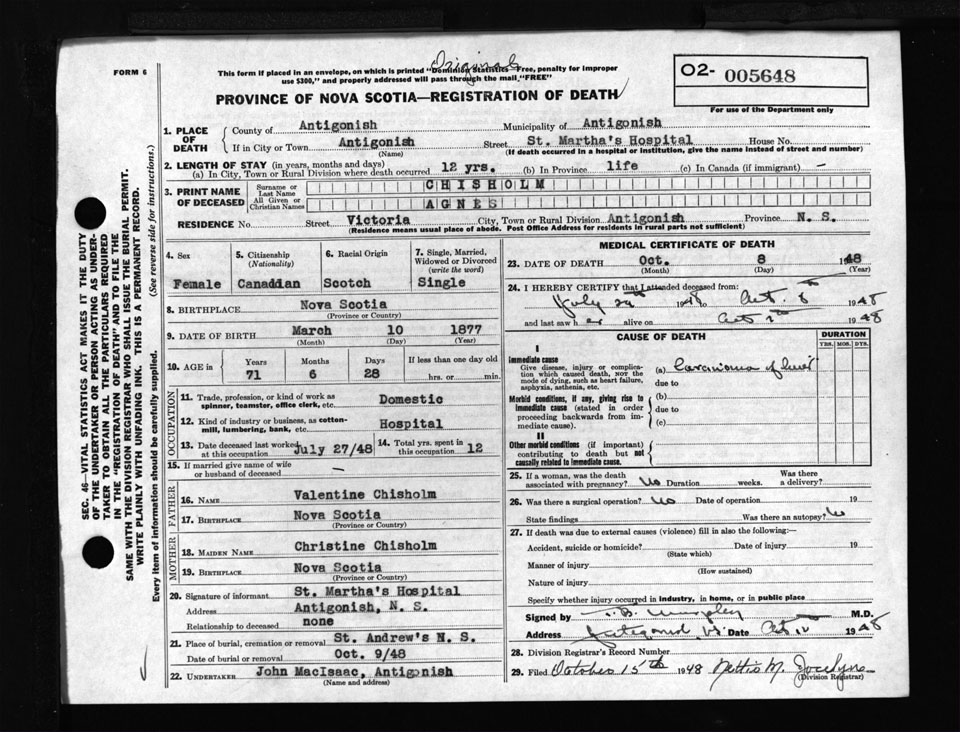 Original
FORM 6
This form if placed in an envelope, on which is printed "Dominion Statistics—Free, penalty for improper
use $300," and properly addressed will pass through the mail "FREE"
O2- 005648
For use of the Department only
PROVINCE OF NOVA SCOTIA—REGISTRATION OF DEATH
1. PLACE OF DEATH County of Antigonish Municipality of Antigonish
If in City or Town Antigonish Street St. Martha's Hospital House No.
(Name) (If death occurred in a hospital or institution, give the name instead of street and number)
2. LENGTH OF STAY (in years, months and days)
(a) In City, Town or Rural Division where death occurred 12 yrs. (b) In Province life (c) In Canada (if immigrant) —
3. PRINT NAME OF DECEASED Surname or Last Name CHISHOLM
All Given or Christian Names AGNES
RESIDENCE No. Street Victoria City, Town or Rural Division Antigonish Province N. S.
(Residence means usual place of abode. Post Office Address for residents in rural parts not sufficient)
4. Sex Female
5. Citizenship (Nationality) Canadian
6. Racial Origin Scotch
7. Single, Married, Widowed or Divorced (write the word) Single
8. BIRTHPLACE Nova Scotia
(Province or Country)
9. DATE OF BIRTH March 10 1877
(Month) (Day) (Year)
10. AGE in Years Months Days If less than one day old
71 6 28 hrs. or min.
OCCUPATION
11. Trade, profession, or kind of work as spinner, teamster, office clerk, etc. Domestic
12. Kind of industry or business, as cotton-mill, lumbering, bank, etc. Hospital
13. Date deceased last worked at this occupation July 27/48 14. Total yrs. spent in this occupation 12
15. If married give name of wife or husband of deceased —
FATHER
16. NAME Valentine Chisholm
17. BIRTHPLACE Nova Scotia
(Province or Country)
MOTHER
18. MAIDEN NAME Christine Chisholm
19. BIRTHPLACE Nova Scotia
(Province or Country)
20. Signature of informant St. Martha's Hospital
Address Antigonish, N. S.
Relationship to deceased none
21. Place of burial, cremation or removal St. Andrew's N. S.
Date of burial or removal Oct. 9/48
22. UNDERTAKER John MacIsaac, Antigonish
(Name and address)
MEDICAL CERTIFICATE OF DEATH
23. DATE OF DEATH Oct. 8 1948
(Month) (Day) (Year)
24. I HEREBY CERTIFY that I attended deceased from:
July 29th 1948 to Oct. 8th 1948
and last saw her alive on Oct 1948
CAUSE OF DEATH DURATION
YRS. MOS. DYS.
I
Immediate cause
Give disease, injury or complication which caused death, NOT the mode of dying, such as heart failure, asphyxia, asthenia, etc.
(a) Carcinoma of liver
due to
Morbid conditions, if any, giving rise to immediate cause (stated in order proceeding backwards from immediate cause).
(b)
due to
(c)
II
Other morbid conditions (if important) contributing to death but not causally related to immediate cause.
25. If a woman, was the death associated with pregnancy? No Duration weeks. Was there a delivery?
26. Was there a surgical operation? No Date of operation 19
State findings Was there an autopsy? No
27. If death was due to external causes (violence) fill in also the following:—
Accident, suicide or homicide? Date of injury 19
(State which)
Manner of injury
(How sustained)
Nature of injury
Specify whether injury occurred in industry, in home, or in public place
Signed by Murphy M.D.
Address Antigonish, N.S. Date Oct 1948
28. Division Registrar's Record Number
29. Filed October 15th 1948 Nettie M. Jocelyn
(Division Registrar)
SEC. 46—VITAL STATISTICS ACT MAKES IT THE DUTY
OF THE UNDERTAKER OR PERSON ACTING AS UNDER-
TAKER TO OBTAIN ALL THE PARTICULARS REQUIRED
IN THE "REGISTRATION OF DEATH" AND TO FILE THE
SAME WITH THE DIVISION REGISTRAR WHO SHALL ISSUE THE BURIAL PERMIT.
WRITE PLAINLY WITH UNFADING INK. THIS IS A PERMANENT RECORD.
Every item of information should be carefully supplied. (See reverse side for instructions.)